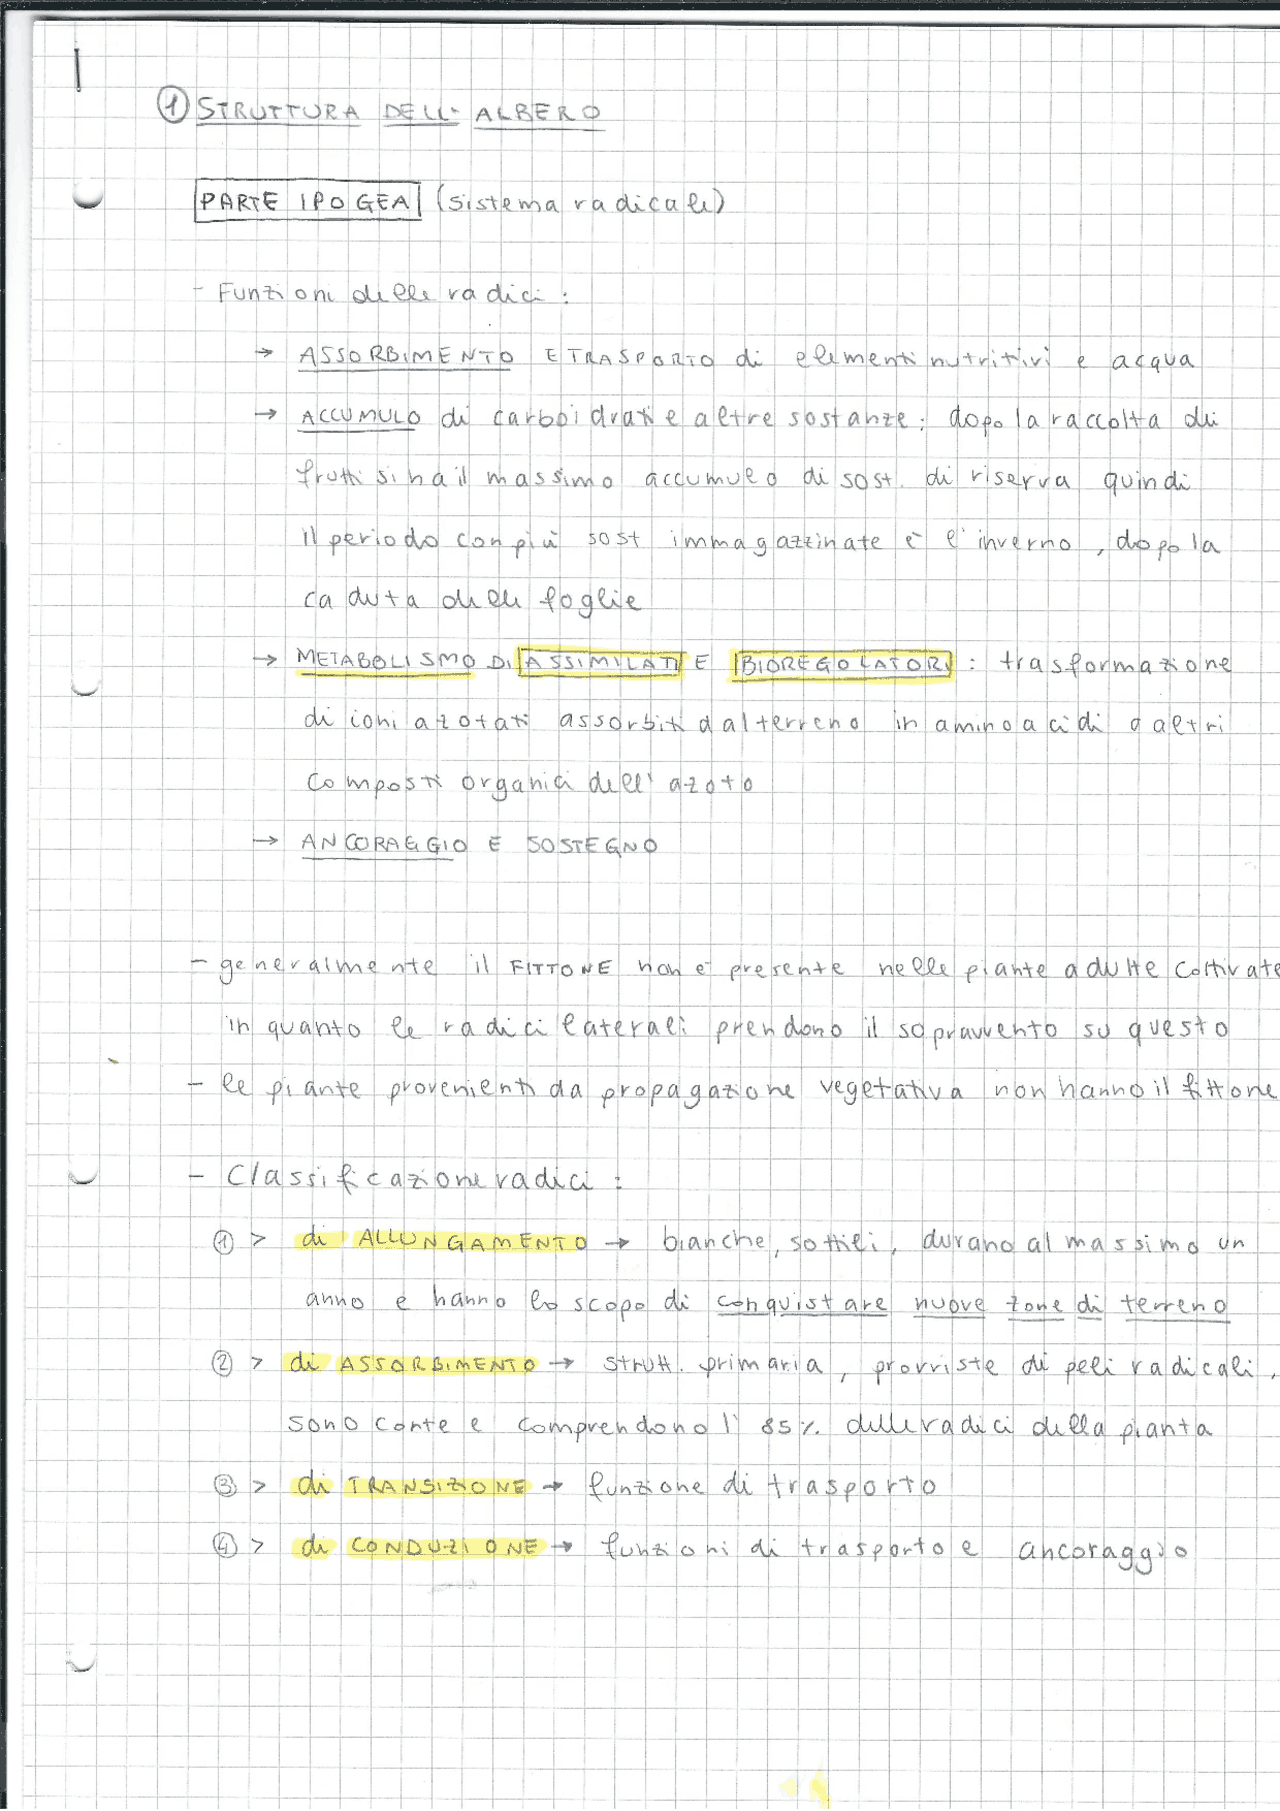 ① STRUTTURA DELL' ALBERO
PARTE IPOGEA (sistema radicale)
- Funzioni delle radici :
→ ASSORBIMENTO E TRASPORTO di elementi nutritivi e acqua
→ ACCUMULO di carboidrati e altre sostanze : dopo la raccolta dei
frutti si ha il massimo accumulo di sost. di riserva quindi
il periodo con più sost immagazzinate è l'inverno , dopo la
caduta delle foglie
→ METABOLISMO DI ASSIMILATI E BIOREGOLATORI : trasformazione
di ioni azotati assorbiti dal terreno in aminoacidi o altri
composti organici dell' azoto
→ ANCORAGGIO E SOSTEGNO
- generalmente il FITTONE non è presente nelle piante adulte coltivate
in quanto le radici laterali prendono il sopravvento su questo
- le piante provenienti da propagazione vegetativa non hanno il fittone
- Classificazione radici :
① > di ALLUNGAMENTO → bianche, sottili, durano al massimo un
anno e hanno lo scopo di conquistare nuove zone di terreno
② > di ASSORBIMENTO → strutt. primaria , provviste di peli radicali,
sono corte e comprendono l' 85% delle radici della pianta
③ > di TRANSIZIONE → funzione di trasporto
④ > di CONDUZIONE → funzioni di trasporto e ancoraggio